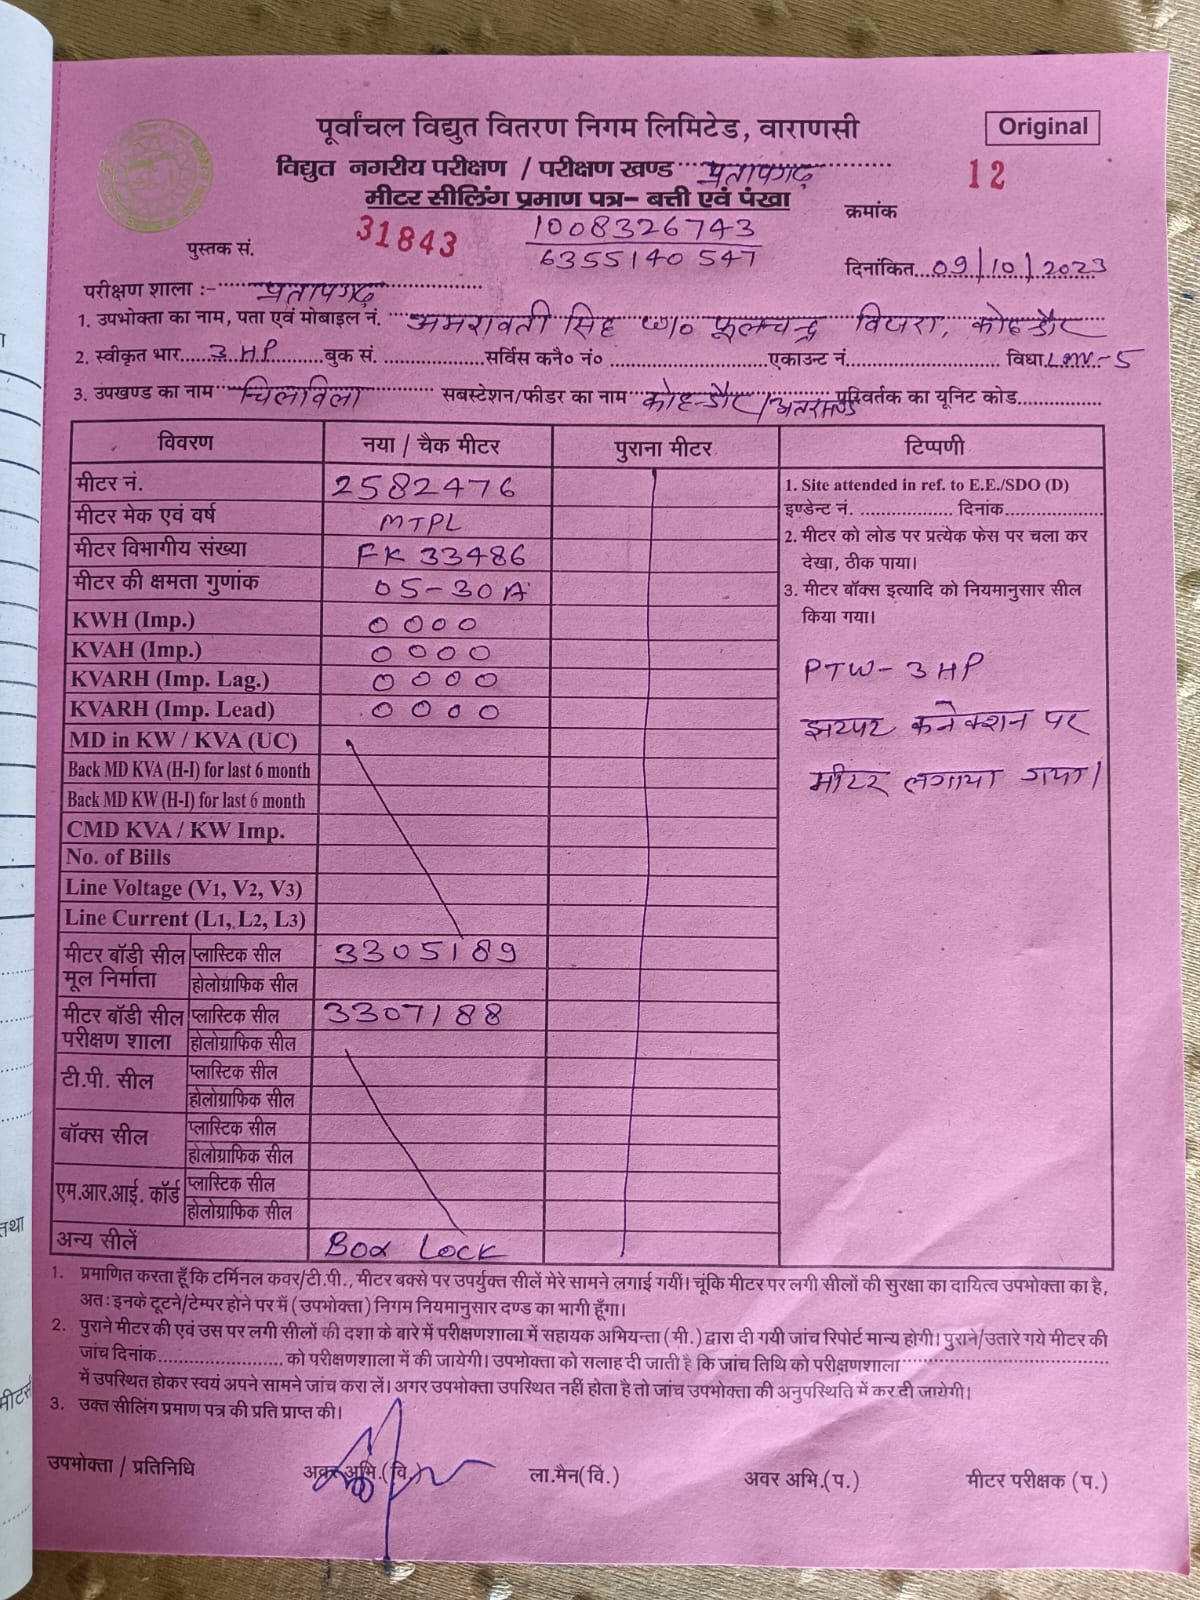 पूर्वांचल विद्युत वितरण निगम लिमिटेड, वाराणसी
Original
विद्युत नगरीय परीक्षण / परीक्षण खण्ड प्रतापगढ़
12
मीटर सीलिंग प्रमाण पत्र– बत्ती एवं पंखा
क्रमांक
पुस्तक सं. 31843
1008326743
6355140547
दिनांकित 09/10/2023
परीक्षण शाला :- प्रतापगढ़
1. उपभोक्ता का नाम, पता एवं मोबाइल नं. अमरावती सिंह w/o फूलचन्द्र
2. स्वीकृत भार 3 HP बुक सं. सर्विस कनै० नं० एकाउन्ट नं. विधा LMV-5
3. उपखण्ड का नाम चिलाविला सबस्टेशन/फीडर का नाम परिवर्तक का यूनिट कोड
विवरण नया / चैक मीटर पुराना मीटर टिप्पणी
मीटर नं. 2582476
मीटर मेक एवं वर्ष MTPL
मीटर विभागीय संख्या FK 33486
मीटर की क्षमता गुणांक 05-30A
KWH (Imp.) 0000
KVAH (Imp.) 0000
KVARH (Imp. Lag.) 0000
KVARH (Imp. Lead) 0000
MD in KW / KVA (UC)
Back MD KVA (H-I) for last 6 month
Back MD KW (H-I) for last 6 month
CMD KVA / KW Imp.
No. of Bills
Line Voltage (V1, V2, V3)
Line Current (L1, L2, L3)
मीटर बॉडी सील मूल निर्माता प्लास्टिक सील 3305189
होलोग्राफिक सील
मीटर बॉडी सील परीक्षण शाला प्लास्टिक सील 3307188
होलोग्राफिक सील
टी.पी. सील प्लास्टिक सील
होलोग्राफिक सील
बॉक्स सील प्लास्टिक सील
होलोग्राफिक सील
एम.आर.आई. कॉर्ड प्लास्टिक सील
होलोग्राफिक सील
अन्य सीलें Box Lock
1. Site attended in ref. to E.E./SDO (D)
इण्डेन्ट नं. दिनांक
2. मीटर को लोड पर प्रत्येक फेस पर चला कर
देखा, ठीक पाया।
3. मीटर बॉक्स इत्यादि को नियमानुसार सील
किया गया।
PTW- 3HP
झटपट कनेक्शन पर
मीटर लगाया गया।
1. प्रमाणित करता हूँ कि टर्मिनल कवर/टी.पी., मीटर बक्से पर उपर्युक्त सीलें मेरे सामने लगाई गयीं। चूंकि मीटर पर लगी सीलों की सुरक्षा का दायित्व उपभोक्ता का है,
अतः इनके टूटने/टेम्पर होने पर मैं (उपभोक्ता) निगम नियमानुसार दण्ड का भागी हूँगा।
2. पुराने मीटर की एवं उस पर लगी सीलों की दशा के बारे में परीक्षणशाला में सहायक अभियन्ता (मी.) द्वारा दी गयी जांच रिपोर्ट मान्य होगी। पुराने/उतारे गये मीटर की
जांच दिनांक को परीक्षणशाला में की जायेगी। उपभोक्ता को सलाह दी जाती है कि जांच तिथि को परीक्षणशाला
में उपस्थित होकर स्वयं अपने सामने जांच करा लें। अगर उपभोक्ता उपस्थित नहीं होता है तो जांच उपभोक्ता की अनुपस्थिति में कर दी जायेगी।
3. उक्त सीलिंग प्रमाण पत्र की प्रति प्राप्त की।
उपभोक्ता / प्रतिनिधि अवर अभि.(वि.) ला.मैन(वि.) अवर अभि.(प.) मीटर परीक्षक (प.)
तथा